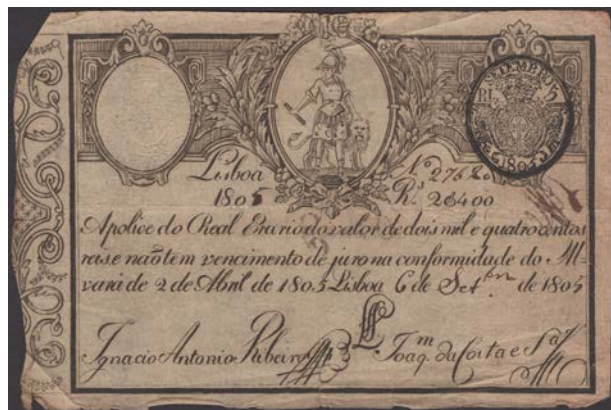 Lisboa Nº 27620
1805 Rˢ 2$400
Apolice do Real Erario do valor de dois mil e quatrocentos
reis e não tem vencimento de juro na conformidade do Al-
vará de 2 de Abril de 1805 Lisboa 6 de Setbro de 1805
Ignacio Antonio Ribeiro Joaqm da Costa e Sa
SETEMBRO
1805